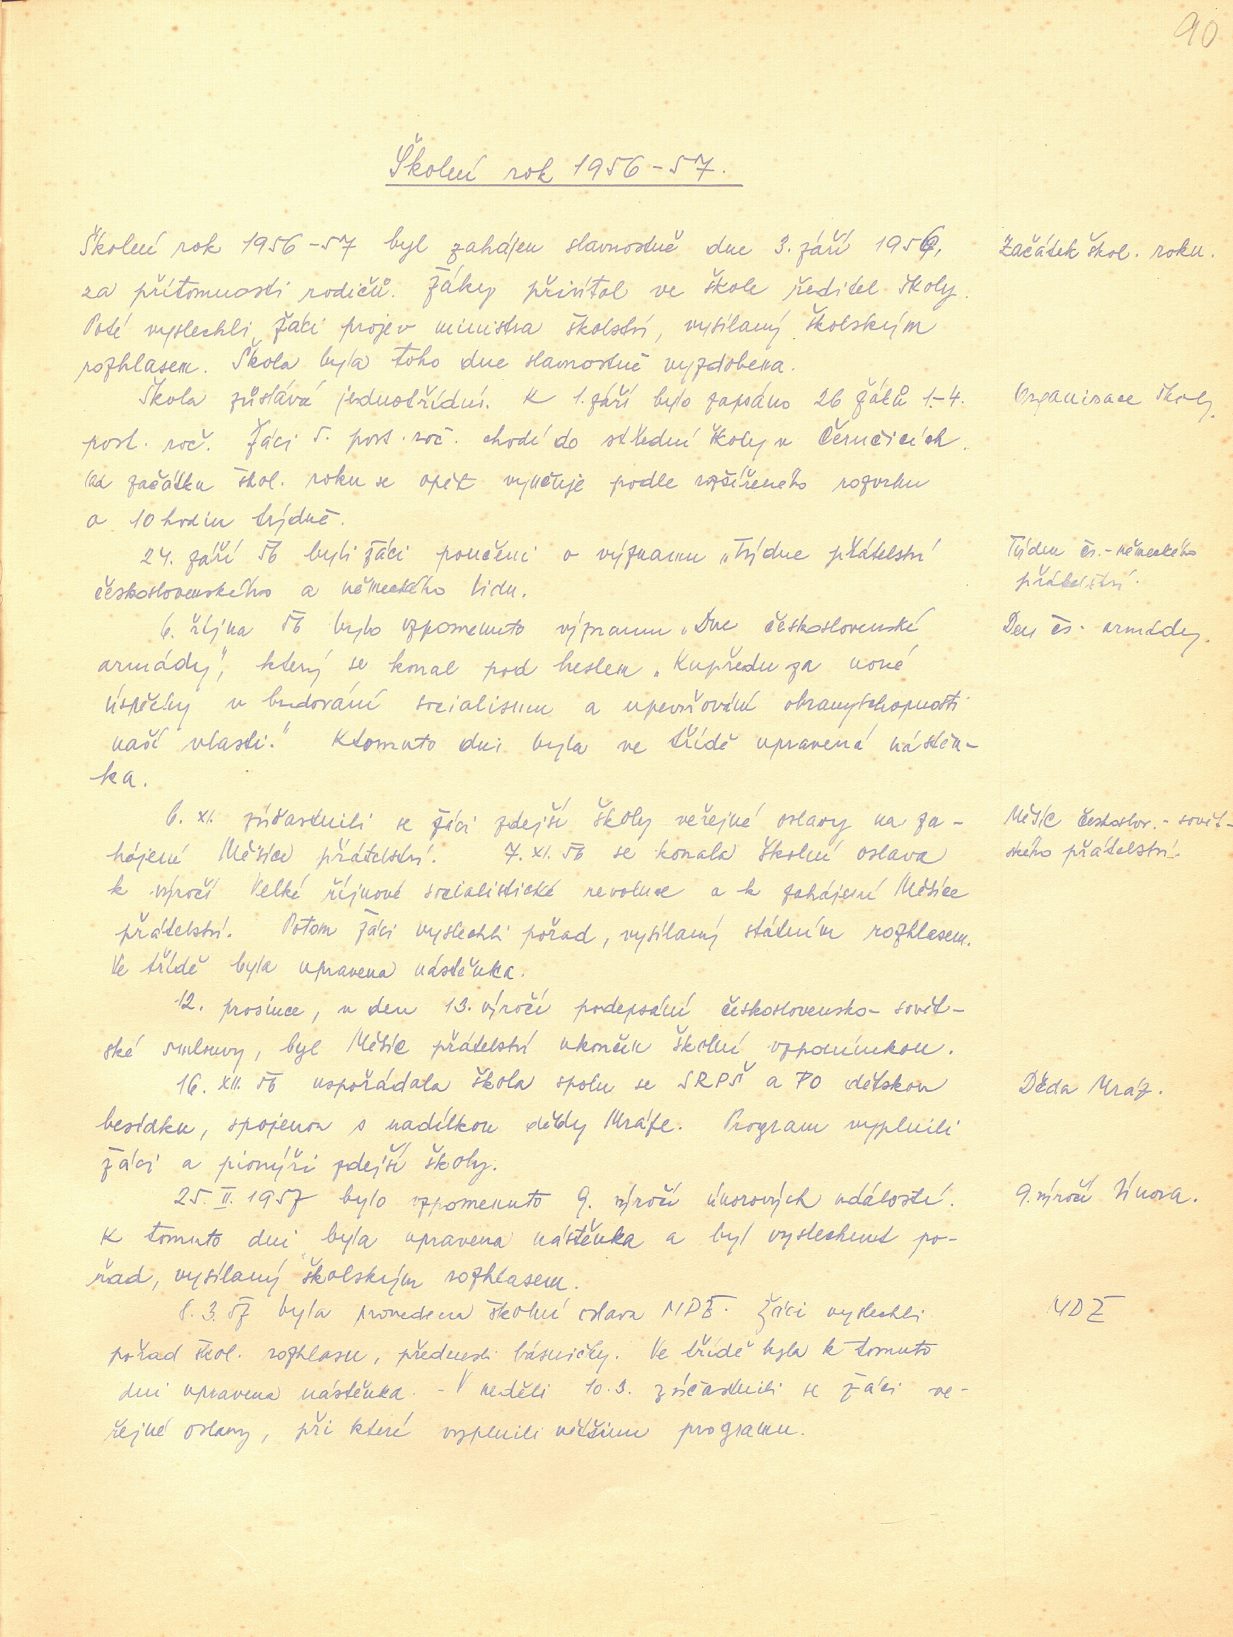 90
Školní rok 1956-57.
Školní rok 1956-57 byl zahájen slavnostně dne 3. září 1956, Začátek škol. roku.
za přítomnosti rodičů. Žáky přivítal ve škole ředitel školy.
Poté vyslechli žáci projev ministra školství, vysílaný školským
rozhlasem. Škola byla toho dne slavnostně vyzdobena.
Škola zůstává jednotřídní. K 1. září bylo zapsáno 26 žáků 1.-4. Organisace školy.
post. roč. Žáci 5. post. roč. chodí do střední školy v Černčicích.
Na začátku škol. roku se opět vyučuje podle rozšířeného rozvrhu
o 10 hodin týdně.
24. září 56 byli žáci poučeni o významu „Týdne přátelství Týden čs.-německého
československého a německého lidu. přátelství.
6. října 56 bylo vzpomenuto významu „Dne československé Den čs. armády.
armády", který se konal pod heslem „Kupředu za nové
úspěchy v budování socialismu a upevňování obranyschopnosti
naší vlasti." K tomuto dni byla ve třídě upravená nástěn-
ka.
6. XI. zúčastnili se žáci zdejší školy veřejné oslavy na za- Měsíc českoslov.-sovět-
hájení Měsíce přátelství. 7. XI. 56 se konala školní oslava ského přátelství.
k výročí Velké říjnové socialistické revoluce a k zahájení Měsíce
přátelství. Potom žáci vyslechli pořad, vysílaný státním rozhlasem.
Ve třídě byla upravena nástěnka.
12. prosince, v den 13. výročí podepsání československo-sovět-
ské smlouvy, byl Měsíc přátelství ukončen školní vzpomínkou.
16. XII. 56 uspořádala škola spolu se SRPŠ a PO dětskou Děda Mráz.
besídku, spojenou s nadílkou dědy Mráze. Program vyplnili
žáci a pionýři zdejší školy.
25. II. 1957 bylo vzpomenuto 9. výročí únorových událostí. 9. výročí Února.
K tomuto dni byla upravena nástěnka a byl vyslechnut po-
řad, vysílaný školským rozhlasem.
8. 3. 57 byla provedena školní oslava MDŽ. Žáci vyslechli MDŽ
pořad škol. rozhlasu, přednesli básničky. Ve třídě byla k tomuto
dni upravena nástěnka. - V neděli 10. 3. zúčastnili se žáci ve-
řejné oslavy, při které vyplnili většinu programu.